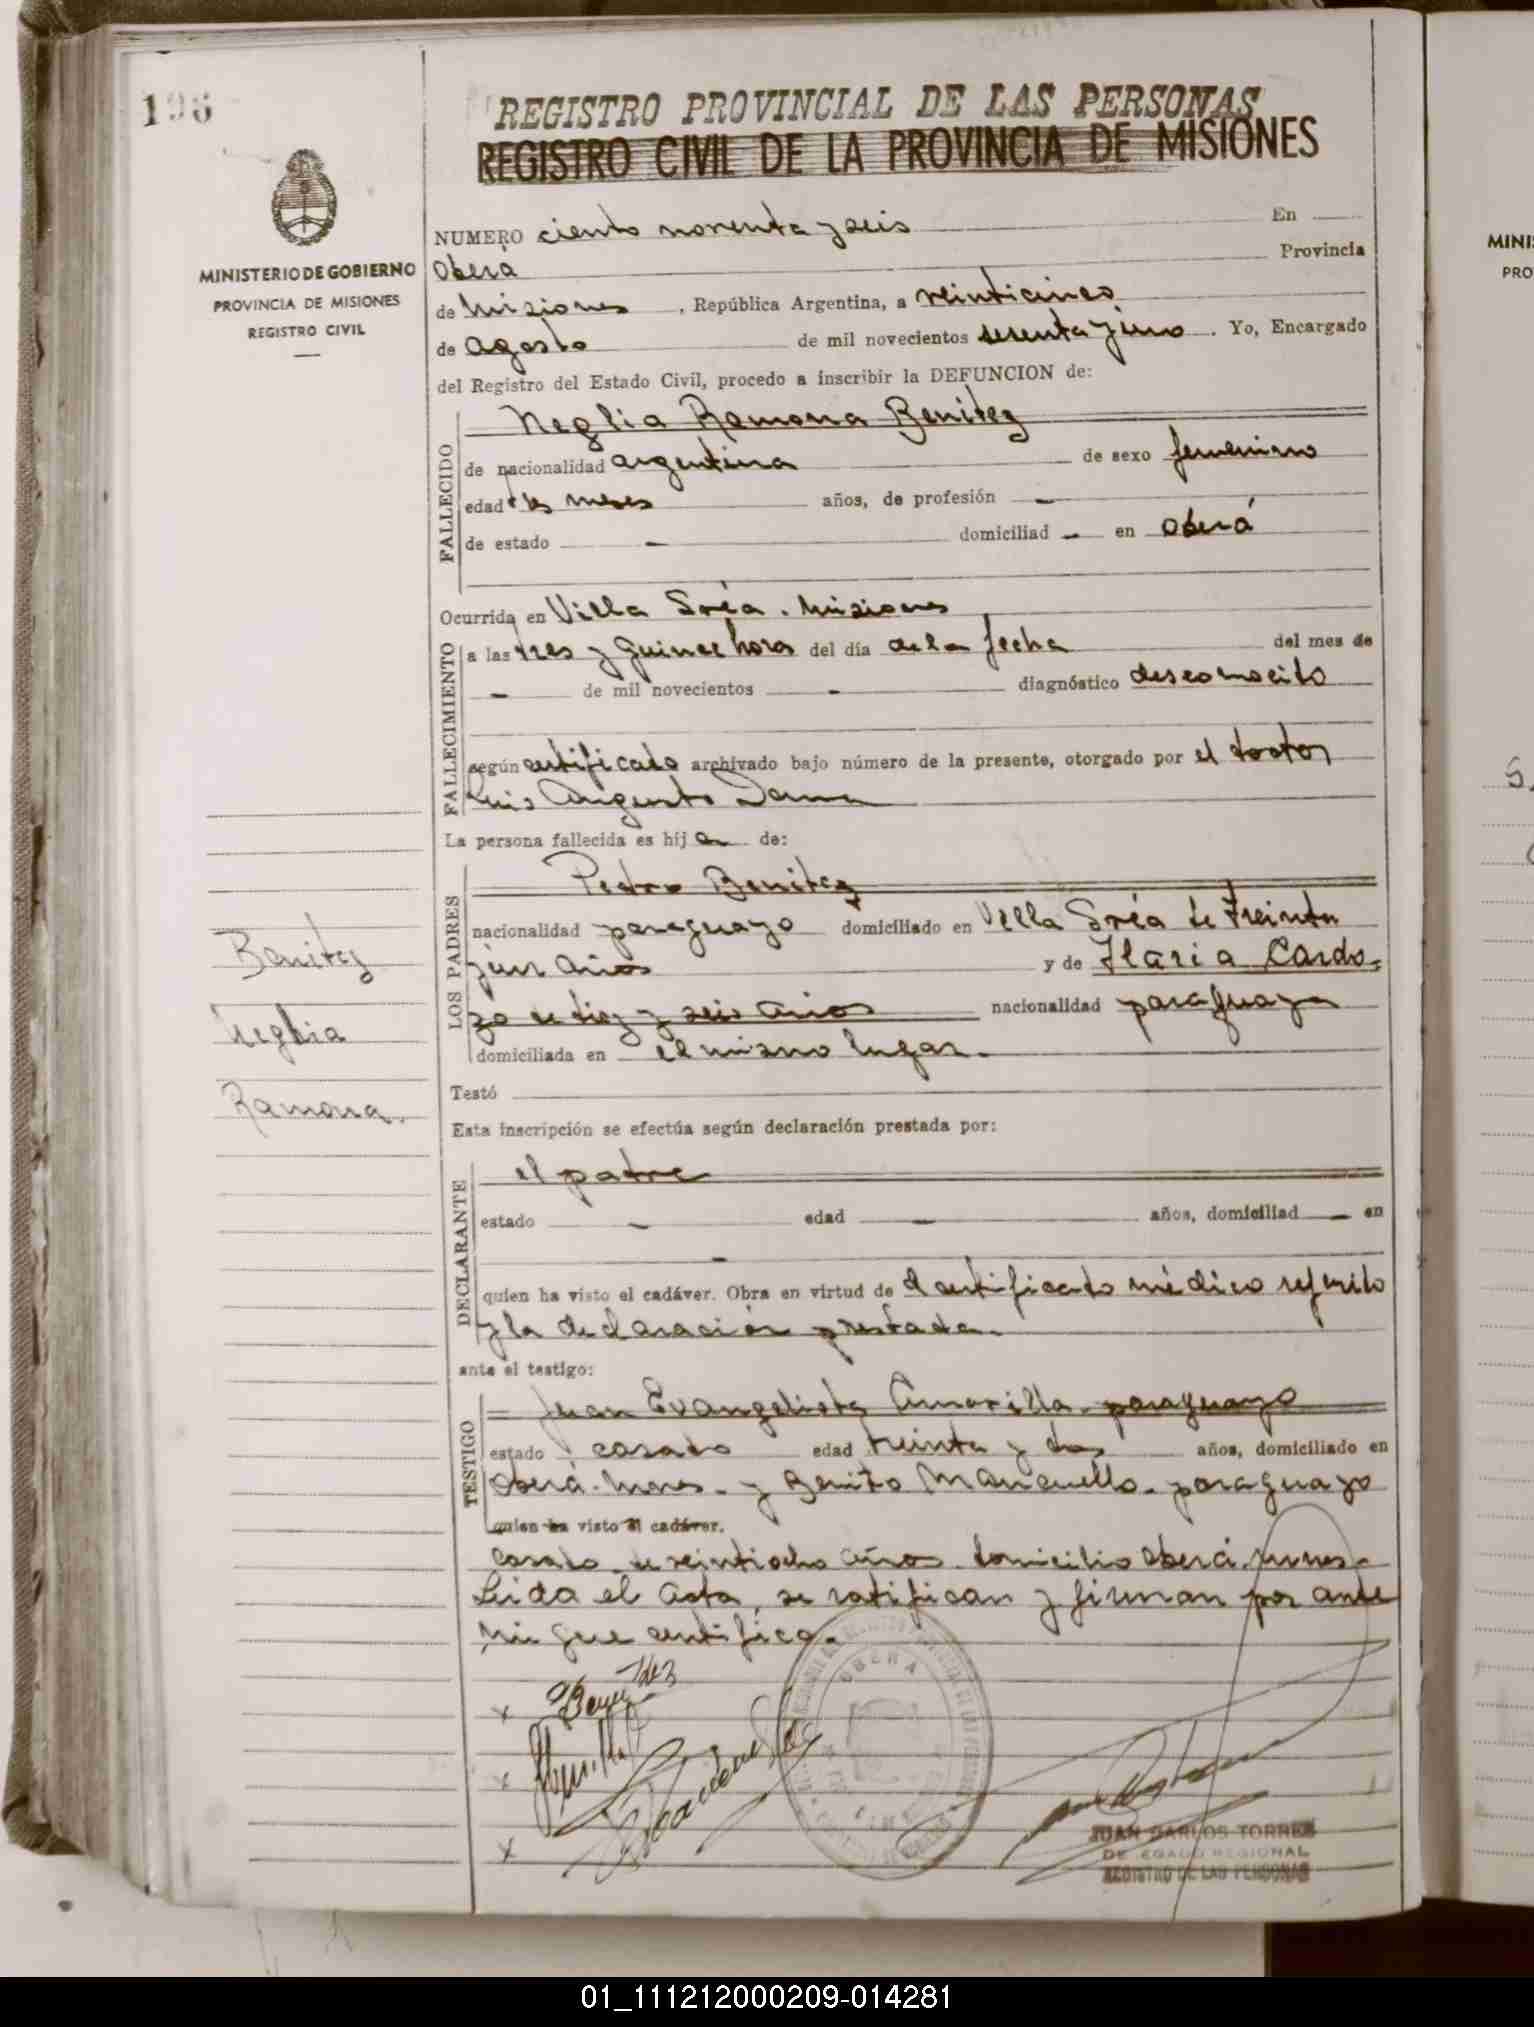 196
REGISTRO PROVINCIAL DE LAS PERSONAS
REGISTRO CIVIL DE LA PROVINCIA DE MISIONES
MINISTERIO DE GOBIERNO
PROVINCIA DE MISIONES
REGISTRO CIVIL
NUMERO ciento noventa y seis En
Oberá Provincia
de Misiones, República Argentina, a veinticinco
de agosto de mil novecientos sesenta y uno. Yo, Encargado
del Registro del Estado Civil, procedo a inscribir la DEFUNCION de:
FALLECIDO
Neglia Ramona Benitez
de nacionalidad argentina de sexo femenino
edad meses años, de profesión -
de estado - domiciliad - en Oberá
Ocurrida en Villa Svéa. Misiones
FALLECIMIENTO
a las tres y quince horas del día de la fecha del mes de
- de mil novecientos - diagnóstico desconocido
según certificado archivado bajo número de la presente, otorgado por el doctor
Luis Augusto
La persona fallecida es hij a de:
LOS PADRES
Pedro Benitez
nacionalidad paraguayo domiciliado en Villa Svéa de treinta
y un años y de Ilaria Cardo-
zo de diez y seis años nacionalidad paraguaya
domiciliada en el mismo lugar.
Benitez
Neglia
Ramona.
Testó
Esta inscripción se efectúa según declaración prestada por:
DECLARANTE
el padre
estado - edad - años, domiciliad - en
-
quien ha visto el cadáver. Obra en virtud de el certificado médico referido
y la declaración prestada.
ante el testigo:
TESTIGO
Juan Evangelista Amarilla. paraguayo
estado casado edad treinta y dos años, domiciliado en
Oberá. Mnes. y Benito Mancuello. paraguayo
quien ha visto el cadáver.
casado de veintiocho años domicilio Oberá. Mnes.
Leida el acta, se ratifican y firman por ante
mi que certifico.
OBERA
JUAN CARLOS TORRES
DELEGADO REGIONAL
REGISTRO DE LAS PERSONAS
MINIS
PRO
01_111212000209-014281